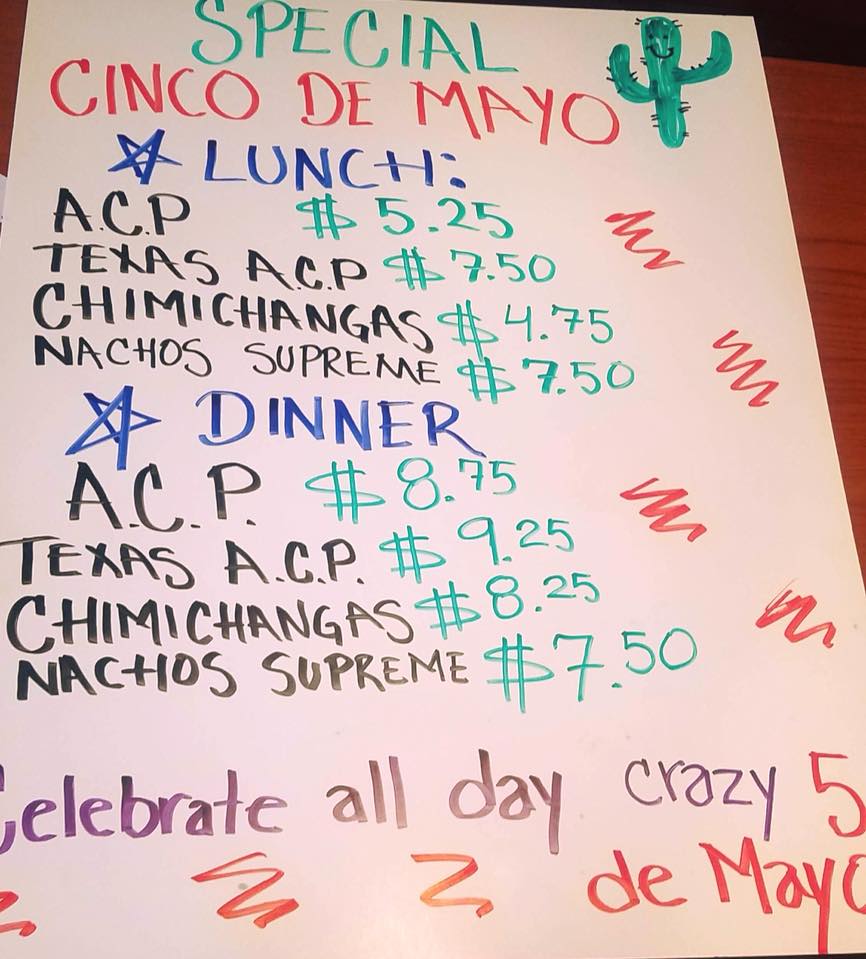 SPECIAL
CINCO DE MAYO
LUNCH:
A.C.P $ 5.25
TEXAS A.C.P $ 7.50
CHIMICHANGAS $ 4.75
NACHOS SUPREME $ 7.50
DINNER
A.C.P. $ 8.75
TEXAS A.C.P. $ 9.25
CHIMICHANGAS $ 8.25
NACHOS SUPREME $ 7.50
Celebrate all day crazy 5
de Mayo